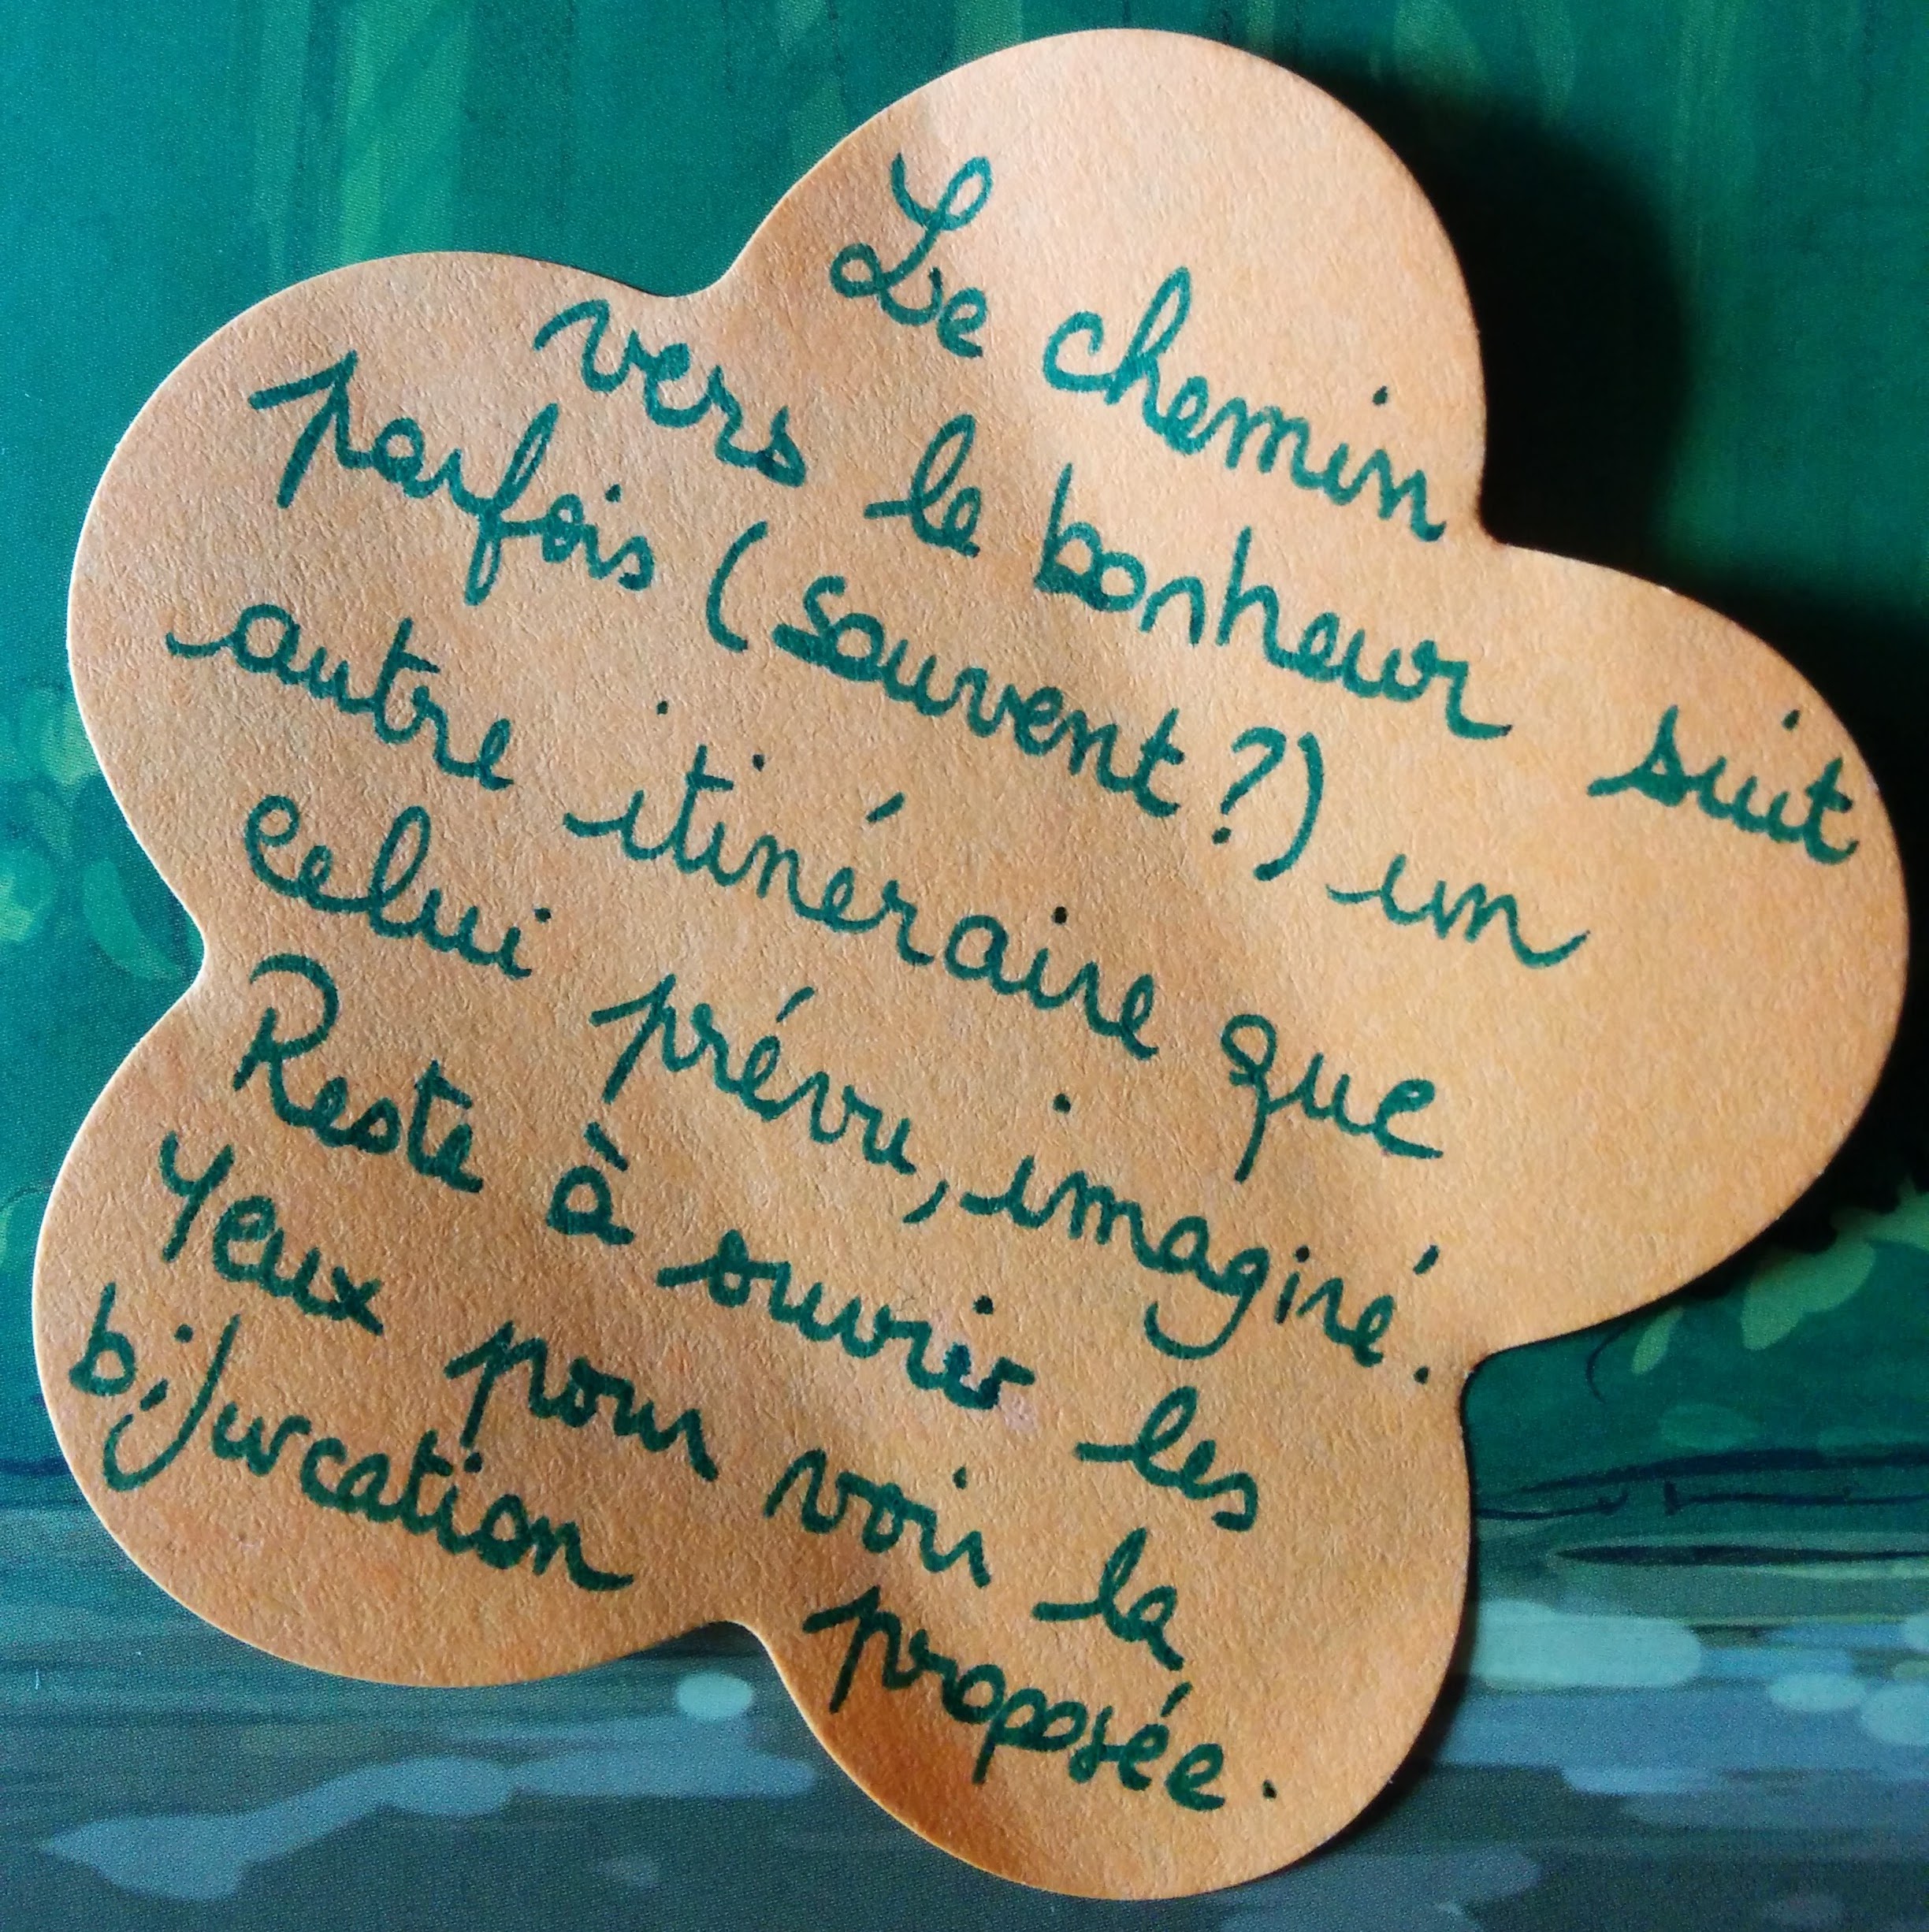 Le chemin
vers le bonheur suit
parfois (souvent ?) un
autre itinéraire que
celui prévu, imaginé.
Reste à ouvrir les
yeux pour voir la
bifurcation proposée.